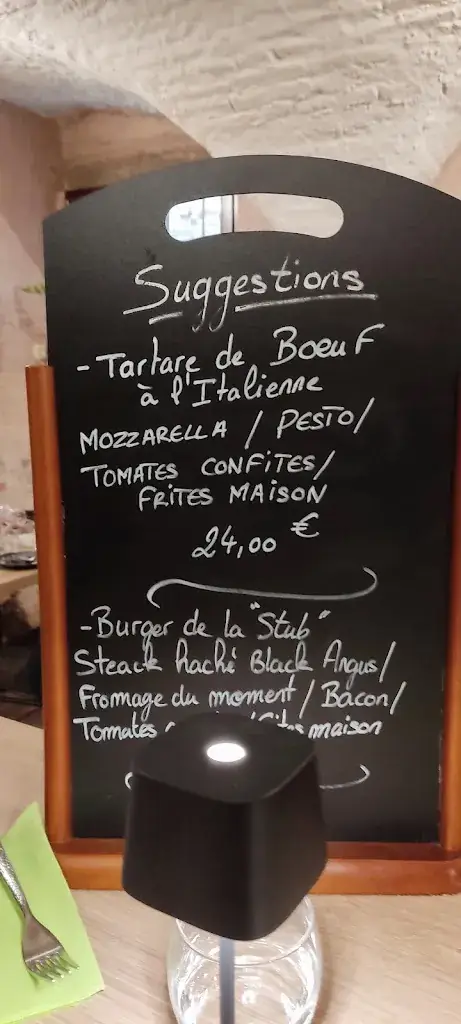 Suggestions
- Tartare de Boeuf
à l'Italienne
MOZZARELLA / PESTO/
TOMATES CONFITES/
FRITES MAISON
24,00 €
- Burger de la "Stub"
Steack haché Black Angus/
Fromage du moment / Bacon/
Tomates maison